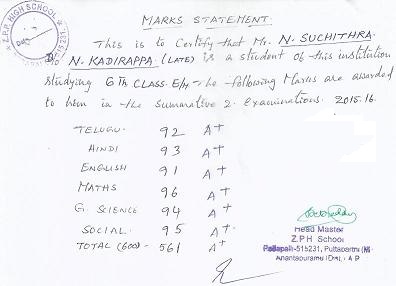 Z.P.P. HIGH SCHOOL
MARKS STATEMENT.
This is to Certify that Mr. N. SUCHITHRA
D/ N. KADIRAPPA (LATE) is a student of this institution
studying 6Th CLASS. E/M The following Marks are awarded
to him in the summative 2. examinations. 2015.16.
TELUGU. 92 A+
HINDI 93 A+
ENGLISH 91 A+
MATHS 96 A+
G. SCIENCE 94 A+
SOCIAL. 95 A+
TOTAL (600) - 561 A+
Head Master
Z.P.H School
-515231, Puttaparthi (M)
A P